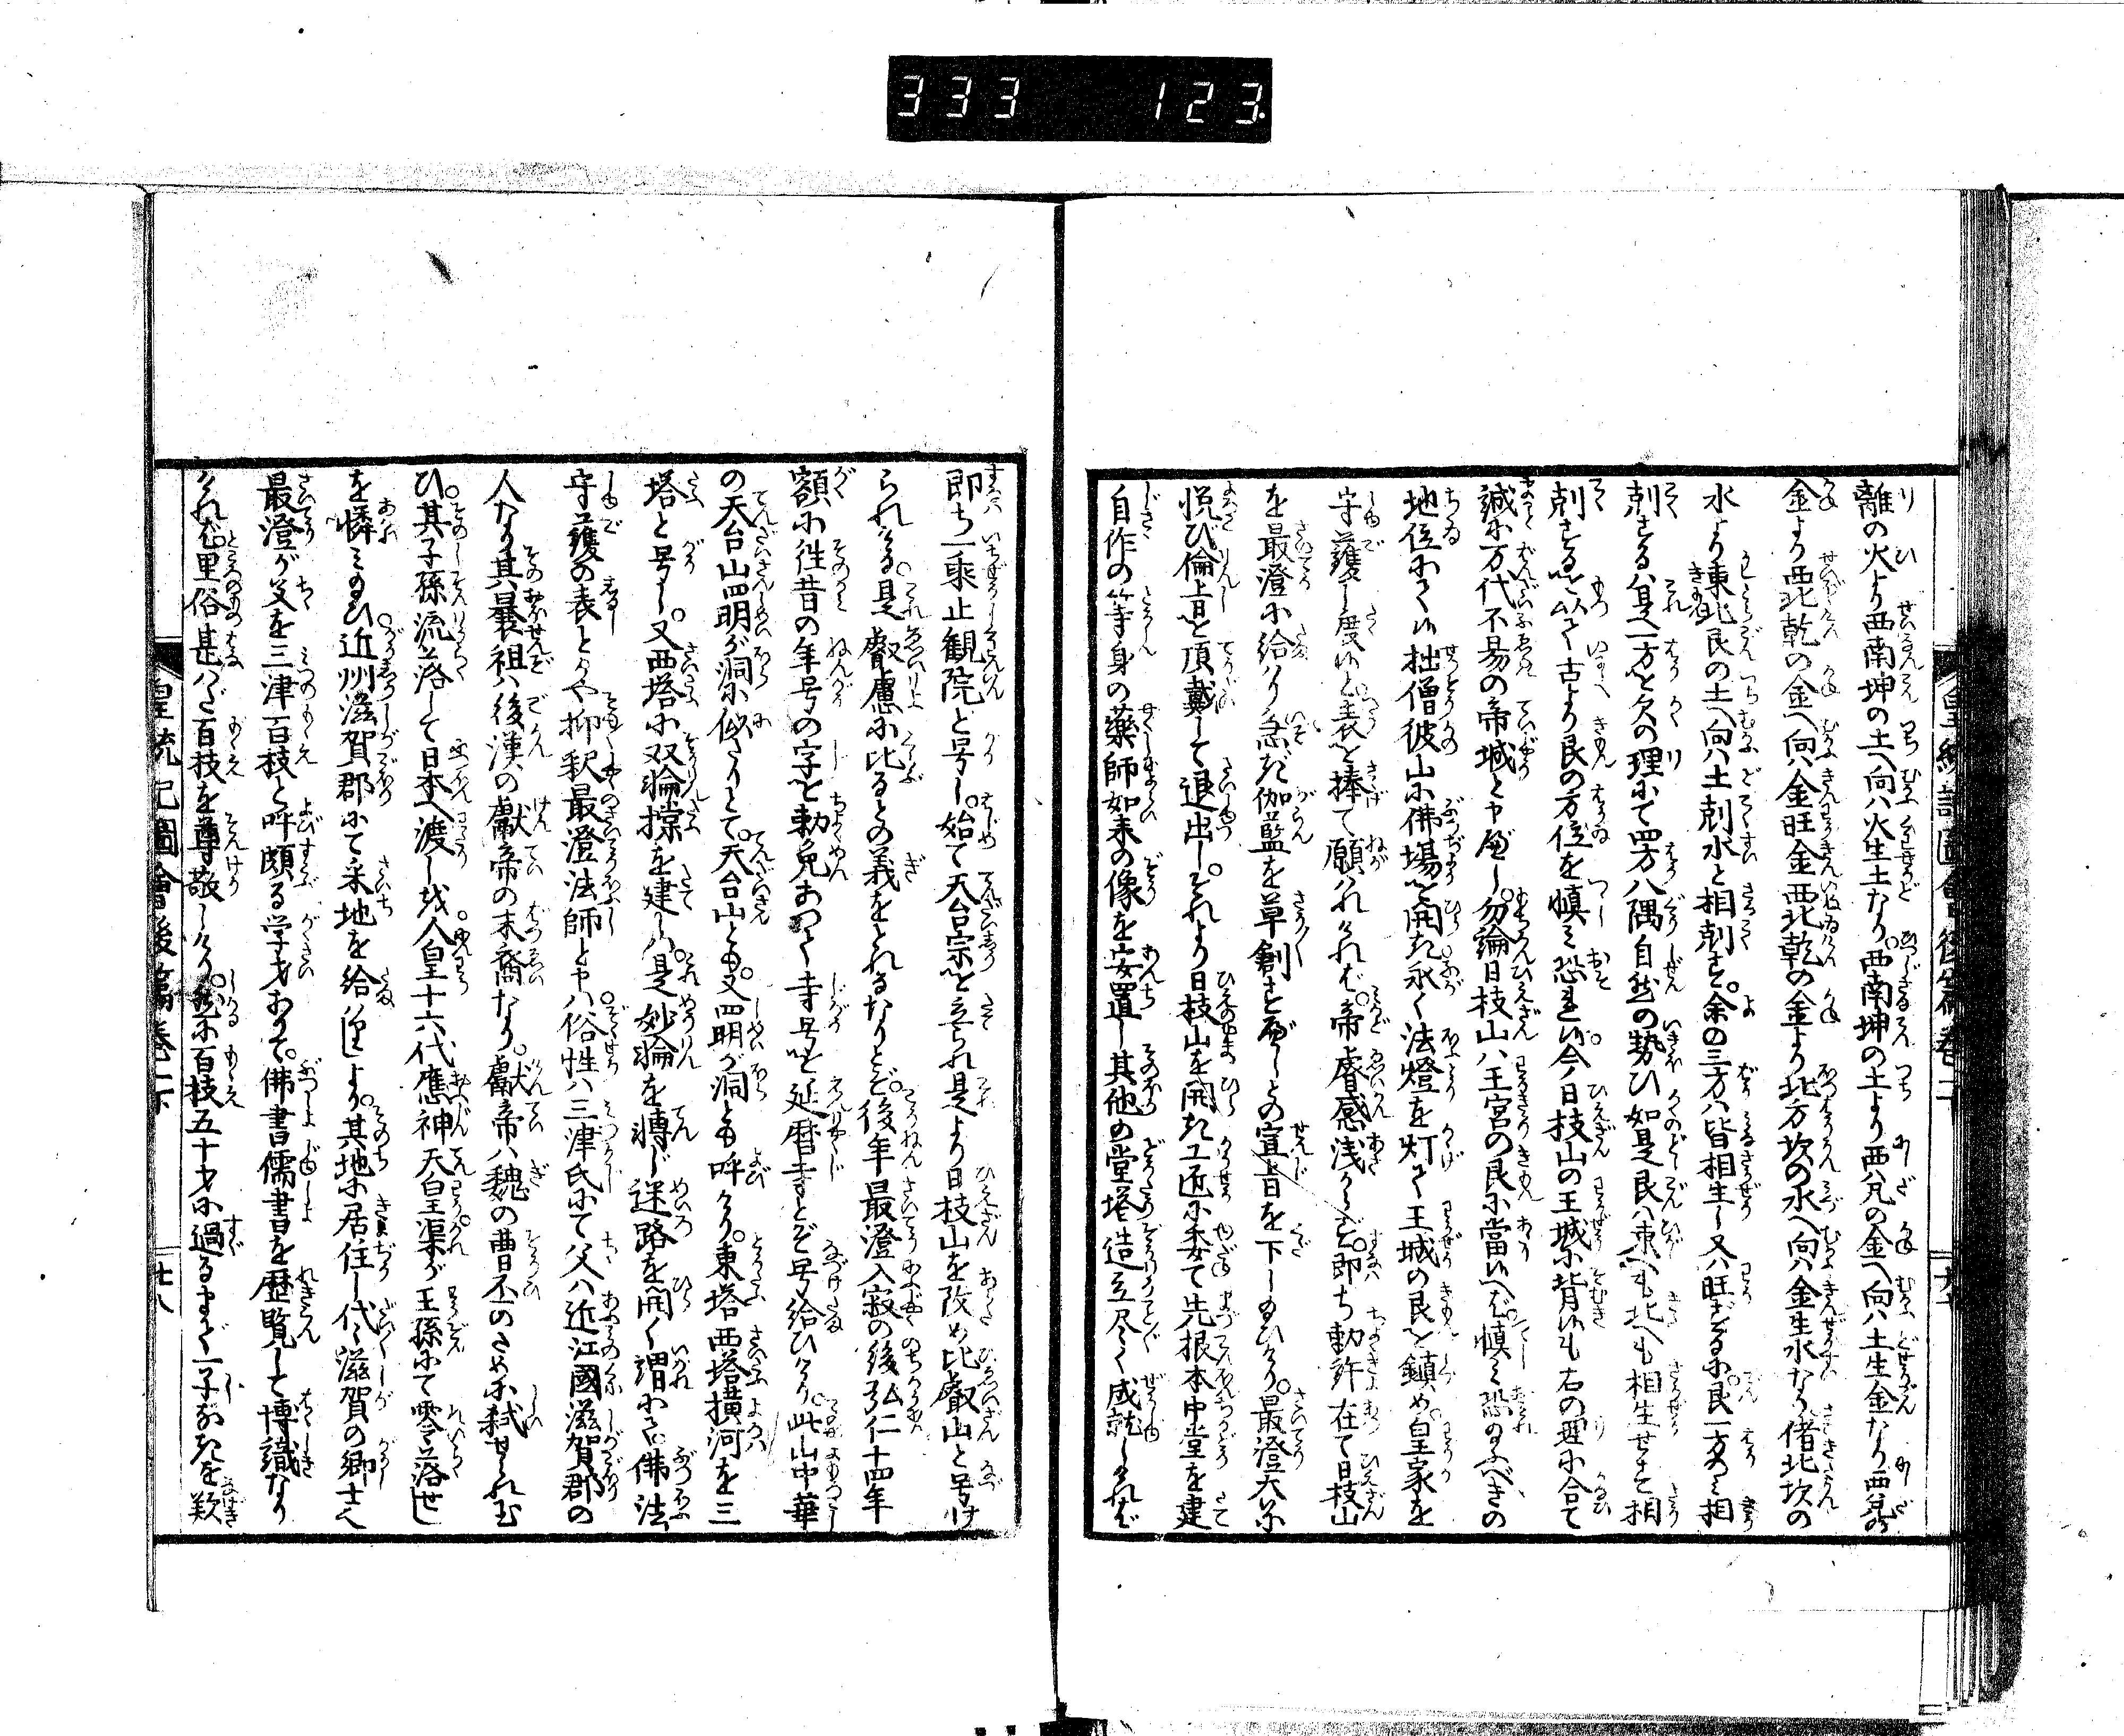 333 123
離の火より西南坤の土へ向ハ火生土なり。西南坤の土より西ハ兌の金へ向ハ土生金なり西兌の
金より西北乾の金へ向ハ金旺金西北乾の金より北方坎の水へ向ハ金生水なり偖北坎の
水より東北艮の土へ向ハ土剋水と相剋す。余の三方ハ皆相生し又ハ旺ずるに。艮一方のミ相
剋するハ是一方を欠の理にて四方八隅自然の勢ひ如是艮ハ東へも北へも相生せず相
剋するを以て古より艮の方位を慎ミ恐れ候。今日枝山の王城に背候も右の理に合て
誠に万代不易の帝城と申べし。勿論日枝山ハ王宮の艮に當候へバ慎ミ恐るべきの
地位にて候拙僧彼山に佛場を開き永く法燈を灯て王城の艮を鎮め皇家を
守護し度候と表を捧て願ハれけれバ。帝睿感浅からず。即ち勅許在て日枝山
を最澄に給ハり急ぎ伽藍を草創すべしとの宣旨を下し給ひけり。最澄大に
悦び倫旨を頂戴して退出し。それより日枝山を開き工匠に委て先根本中堂を建
自作の等身の薬師如来の像を安置し其他の堂塔造立尽く成就しけれバ
即ち一乘止観院と号し。始て天台宗を立られ是より日枝山を改め比叡山と号け
られける。是叡慮に比るとの義をとれるなりとぞ。後年最澄入寂の後弘仁十四年
額に徃昔の年号の字を勅免あつて寺号を延暦寺とぞ号給ひけり。此山中華
の天台山四明が洞に似たりとて。天台山とも。又四明が洞とも呼けり。東塔西塔横河を三
塔と号し。又西塔に双輪橖を建しハ。是妙輪を轉じ迷路を開く謂にて佛法
守護の表とかや抑釈最澄法師と申ハ俗性ハ三津氏にて父ハ近江國滋賀郡の
人なり其曩祖ハ後漢の獻帝の末裔なり。獻帝ハ魏の曹丕のために弑せられ玉
ひ。其子孫流落して日本へ渡しを人皇十六代應神天皇渠が王孫にて零落せし
を憐ミ給ひ近州滋賀郡にて采地を給ハりしより。其地に居住し代々滋賀の郷士へ
最澄が父を三津百枝と呼頗る学才ありて。佛書儒書を歴覧して博識なり
けれバ里俗甚ハだ百枝を尊敬しけり。然に百枝五十才に過るまで一子なきを歎
皇統記圖會後篇巻二下